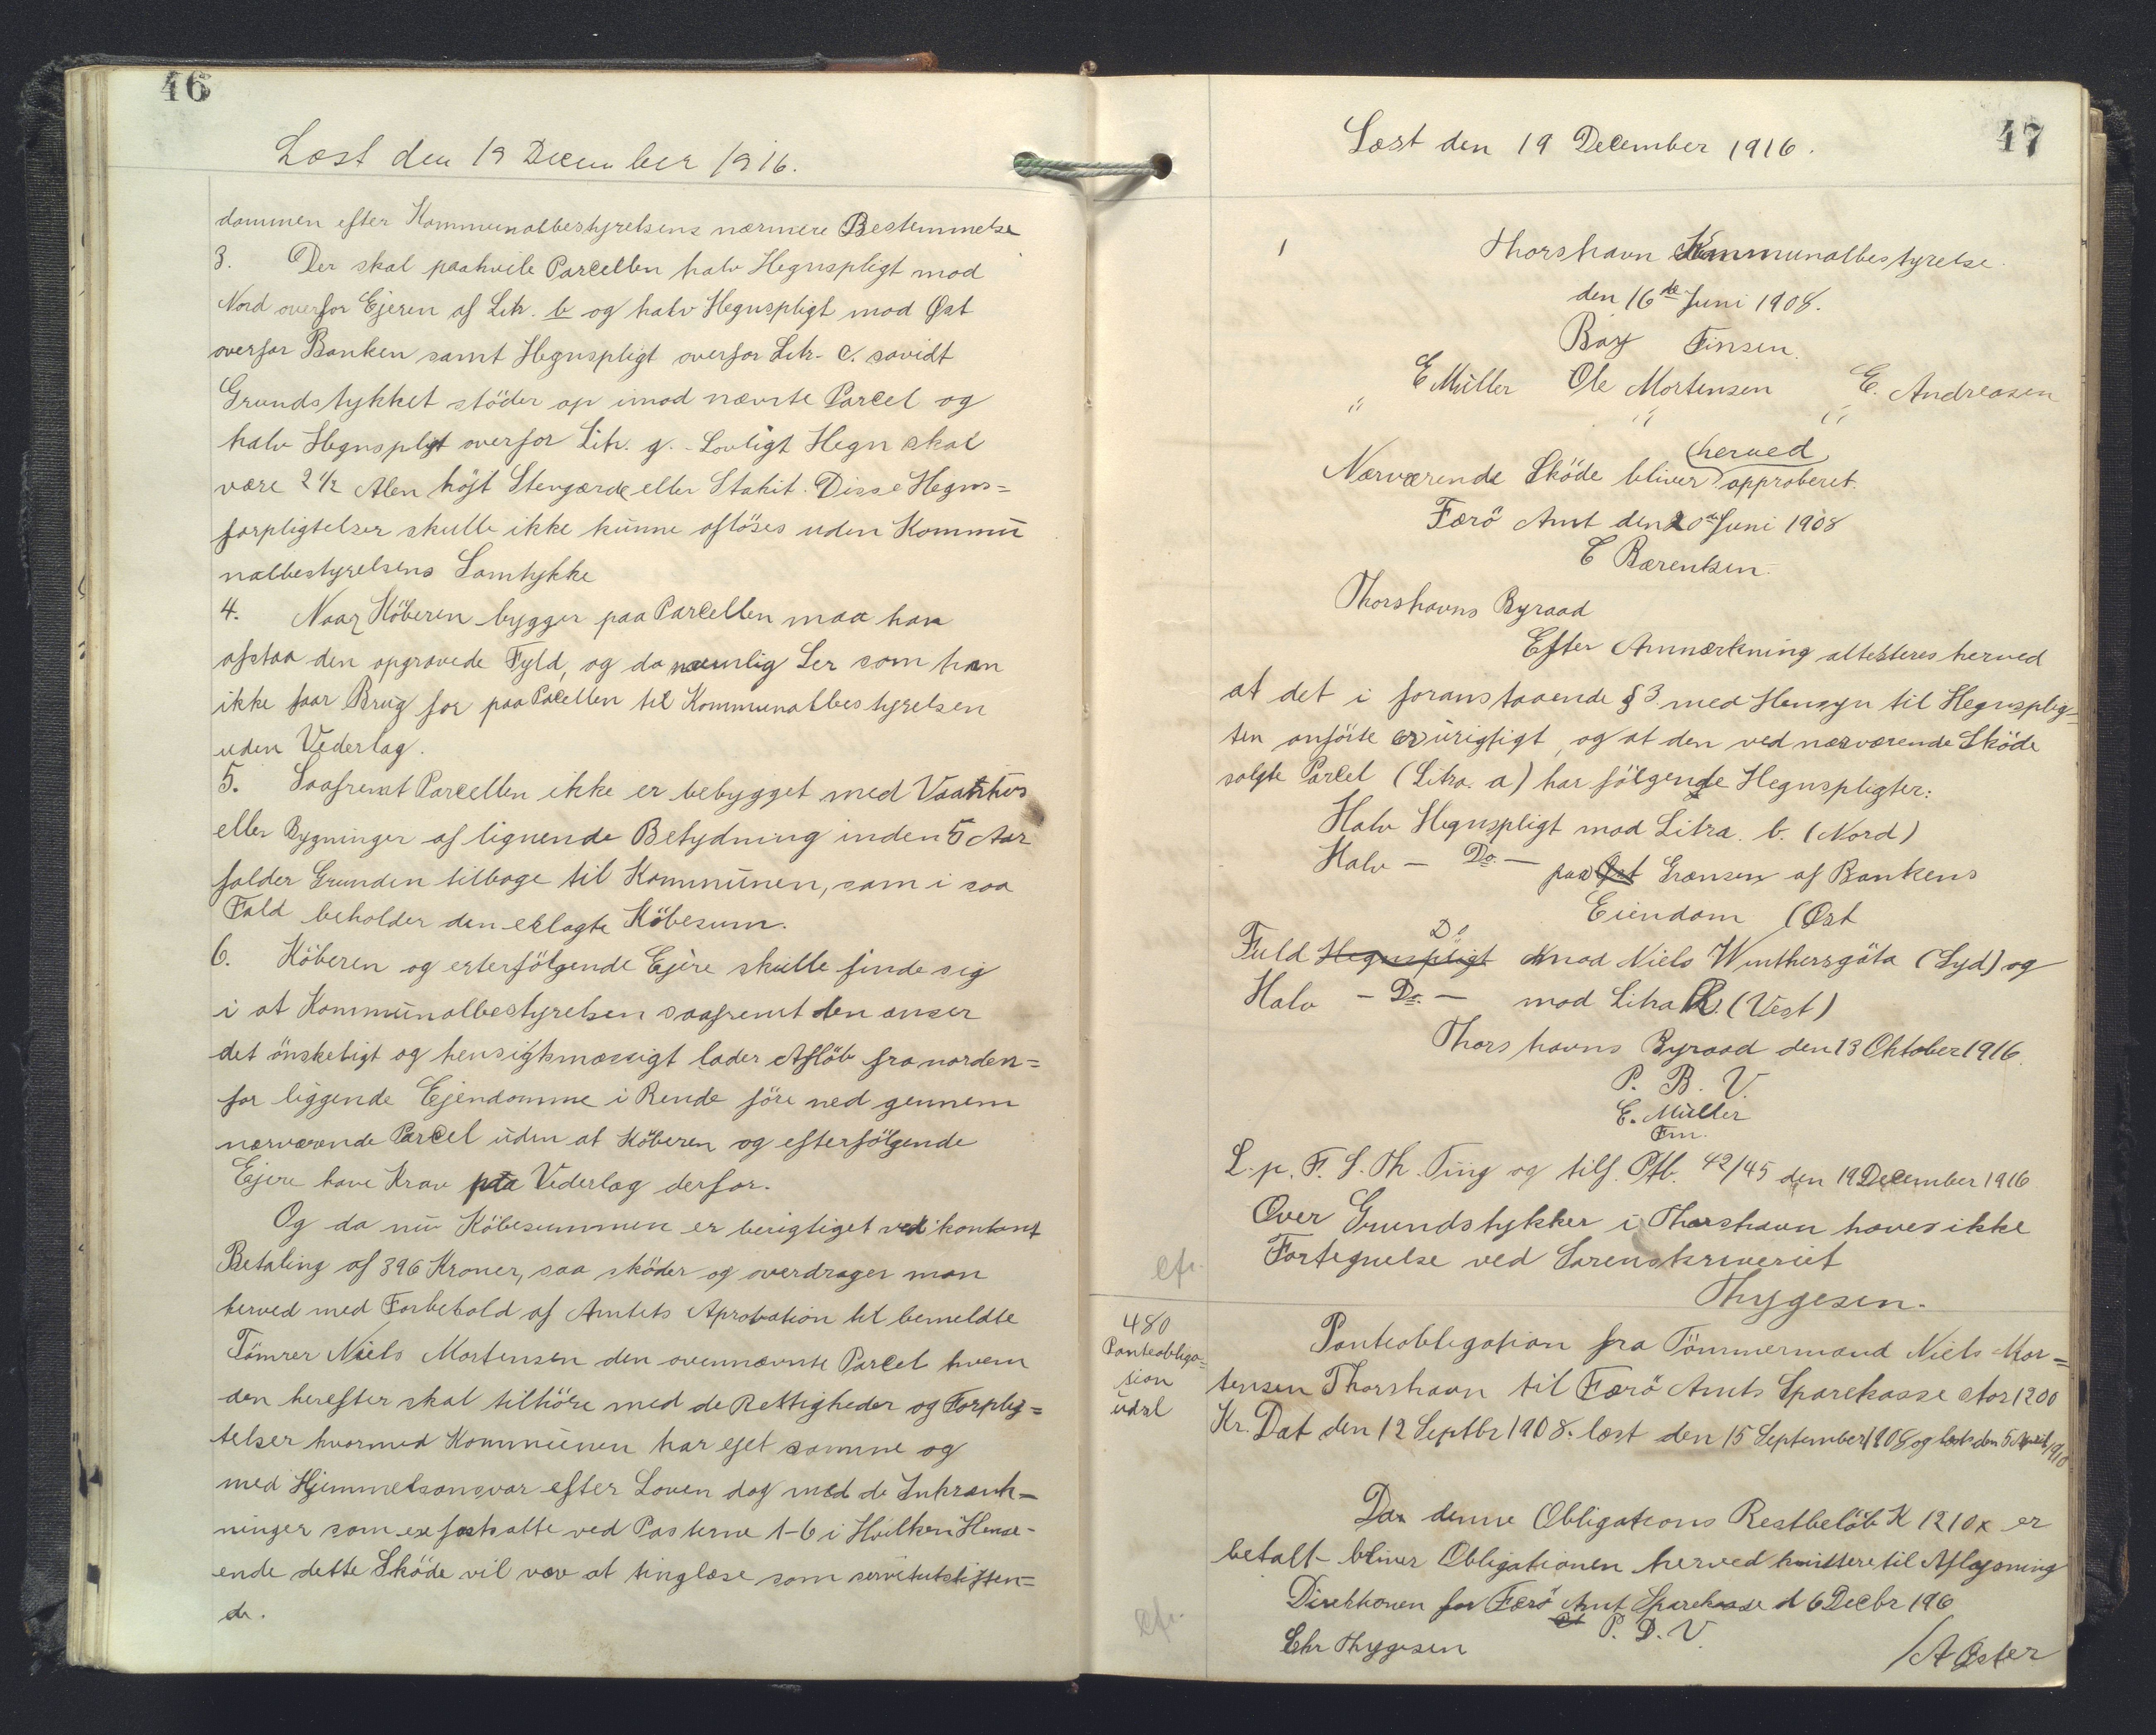 46
Læst den 19 December 1916.
dommen efter Kommunalbestyrelsens nærmere Bestemmelse
3. Der skal paahvile Parcellen halv Hegnspligt mod
Nord overfor Ejeren af Litr. b og halv Hegnspligt mod Øst
overfor Banken samt Hegnspligt overfor Litr. c. savidt
Grundstykket stöder op imod nævnte Parcel og
halv Hegnspligt overfor Litr. g. - Lovligt Hegn skal
være 2 1/2 Alen höjt Stengærde eller Stakit. Disse Hegns=
forpligtelser skulle ikke kunne aflöses uden Kommu
nalbestyrelsens Samtykke
4. Naar Köberen bygger paa Parcellen maa han
afstaa den opgravede Fyld, og da navnlig Ler som han
ikke faar Brug for paa Pacellen til Kommunalbestyrelsen
uden Vederlag.
5. Saafremt Parcellen ikke er bebygget med Vaanhus
eller Bygninger af lignende Betydning inden 5 Aar
falder Grunden tilbage til Kommunen, som i saa
Fald beholder den erlagte Köbesum.
6. Köberen og efterfölgende Ejere skulle finde sig
i at Kommunalbestyrelsen saafremt den anser
det önskeligt og hensigtsmæssigt lader Aflöb fra norden=
for liggende Ejendomme i Rende före ned gennem
nærværende Parcel uden at Köberen og efterfölgende
Ejere have Krav paa Vederlag derfor.
Og da nu Köbesummen er berigtiget ved kontant
Betaling af 396 Kroner, saa sköder og overdrager man
herved med Forbehold af Amtets Aprobation til bemeldte
Tömrer Niels Mortensen den ovennævnte Parcel hvem
den herefter skal tilhöre med de Rettigheder og Forplig=
telser hvormed Kommunen har ejet samme og
med Hjemmelsansvar efter Loven dog med de Inkrænk=
ninger som er fastsatte ved Posterne 1-6 i Hvilken Hense-
ende dette Sköde vil være at tinglæse som servitutstiften=
de.
47
Læst den 19 December 1916.
Thorshavn Kommunalbestyrelse.
den 16de Juni 1908.
Bay Finsen.
E Müller Ole Mortensen E. Andreasen
herved
Nærværende Sköde bliver approberet.
Færö Amt den 20de Juni 1908
C Bærentsen.
Thorshavns Byraad
Efter Anmærkning attesteres herved
at det i foranstaaende § 3 med Hensyn til Hegnsplig=
ten anförte er urigtigt, og at den ved nærværende Sköde
solgte Parcel (Litra. a) har fölgende Hegnspligter:
Halv Hegnspligt mod Litra. b. (Nord)
Halv - Do. - paa Øst Grænsen af Bankens
Eiendom (Øst
Do
Fuld Hegnspligt mod Niels Winthersgöta (Syd) og
Halv - Do. - mod Litra (Vest)
Thorshavns Byraad den 13 Oktober 1916.
P. B. V.
E. Müller
Fm.
L. p. F. S. Th. Ting og tilf. Ptb. 42/45 den 19 December 1916
Over Grundstykker i Thorshavn haves ikke
Fortegnelse ved Sorenskriveriet
Thygesen.
cfr.
480
Panteobliga=
tion
udsl
Panteobligation fra Tömmermand Niels Mor=
tensen Thorshavn til Færö Amts Sparekasse stor 1200
Kr. Dat den 12 Septbr 1908. læst den 15 September 1908 og læst den 5 April 1910
Da denne Obligations Restbelöb K 1210 x er
betalt bliver Obligationen herved kvittere til Aflysning
Direktionen for Færö Amt Sparekasse d 6 Decbr 196
P. D. V.
Chr Thygesen
/A Øster
cfr.